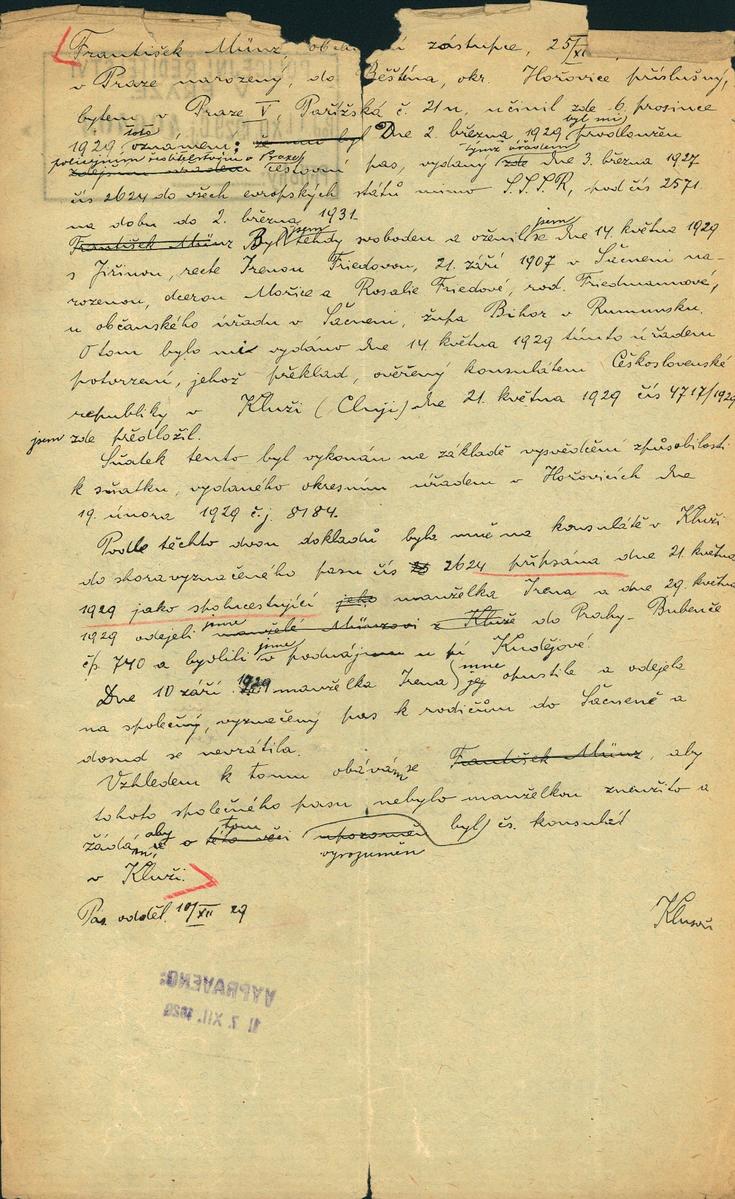 František Münz, obch zástupce, 25/XI
v Praze narozený, do Běština, okr. Hořovice příslušný,
bytem v Praze V, Pařížská č. 21n, učinil zde 6. prosince
1929 toto oznámení: Dne 2. března 1929 byl mi prodloužen
policejním ředitelstvím v Praze cestovní pas, vydaný týmž úřadem dne 3. března 1927
čís 2624 do všech evropských států mimo S.S.S.R, pod čís 2571
na dobu do 2. března 1931.
František Münz Byl jsem tehdy svoboden a oženil jsem se dne 14. května 1929
s Jiřinou, recte Irenou Friedovou, 21. září 1907 v Sácueni na-
rozenou, dcerou Mořice a Rosalie Friedové, roz. Friedmannové,
u občanského úřadu v Sácueni, župa Bihor v Rumunsku.
O tom bylo mi vydáno dne 14. května 1929 tímto úřadem
potvrzení, jehož překlad, ověřený konsulátem Československé
republiky v Kluži (Cluji) dne 21. května 1929 čís 4717/1929
jsem zde předložil.
Sňatek tento byl vykonán na základě vysvědčení způsobilosti
k sňatku, vydaného okresním úřadem v Hořovicích dne
19. února 1929 č.j. 8184.
Podle těchto dvou dokladů byla mně na konsulátě v Kluži
do shora vyznačeného pasu čís 2624 připsána dne 21. května
1929 jako spolucestující jako manželka Irena a dne 29. května
1929 odejeli jsme manželé Münzovi z Kluže do Prahy-Bubenče
čp. 740 a bydlili jsme v podnájmu u pí Kudějové.
Dne 10 září 1929 manželka Irena mne jej opustila a odejela
na společný, vyznačený pas k rodičům do Sácueně a
dosud se nevrátila.
Vzhledem k tomu obávám se František Münz, aby
tohoto společného pasu nebylo manželkou zneužito a
žádám, aby o tom této věci upozorněn vyrozuměn byl čs. konsulát
v Kluži.
Pas. odděl. 10/XII 29
VYPRAVENO:
17. XII. 1929